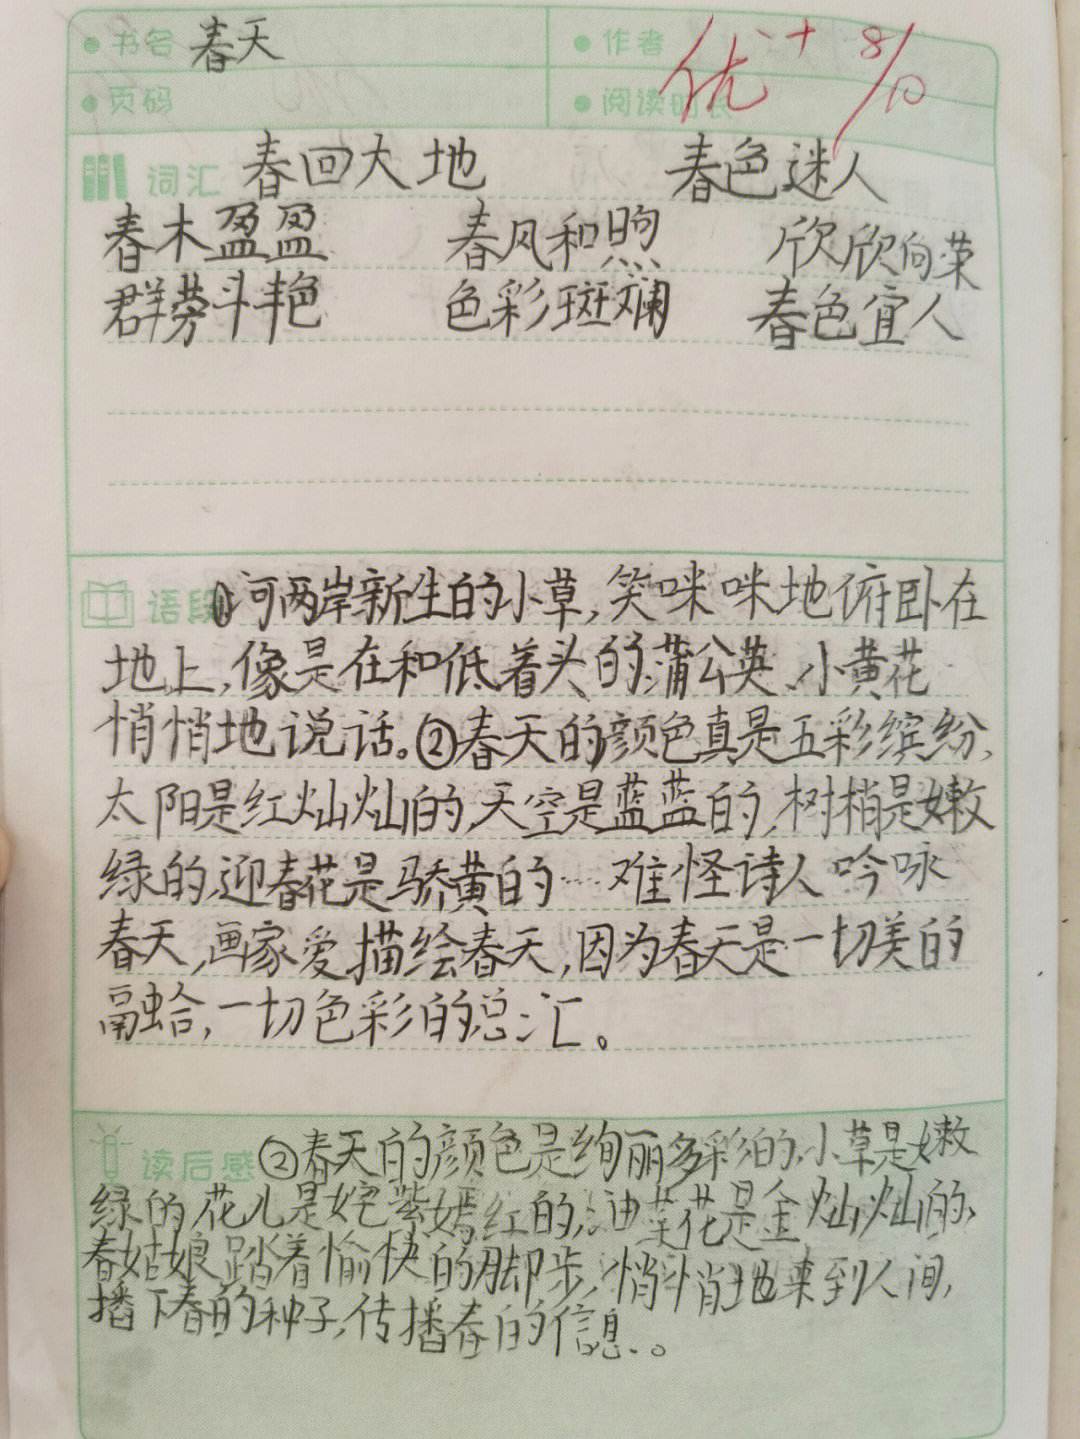 书名 春天 作者 优+ 8/10
页码 阅读时长
词汇 春回大地 春色迷人
春木盈盈 春风和煦 欣欣向荣
群蒡斗艳 色彩斑斓 春色宜人
语段 ①河两岸新生的小草,笑咪咪地俯卧在
地上,像是在和低着头的蒲公英、小黄花
悄悄地说话。②春天的颜色真是五彩缤纷,
太阳是红灿灿的,天空是蓝蓝的,树梢是嫩
绿的,迎春花是骄黄的…难怪诗人吟咏
春天,画家爱描绘春天,因为春天是一切美的
融蛤,一切色彩的总汇。
读后感 ②春天的颜色是绚丽多彩的,小草是嫩
绿的,花儿是姹紫嫣红的,油菜花是金灿灿的,
春姑娘踏着愉快的脚步,悄悄地来到人间,
播下春的种子,传播春的信息..。